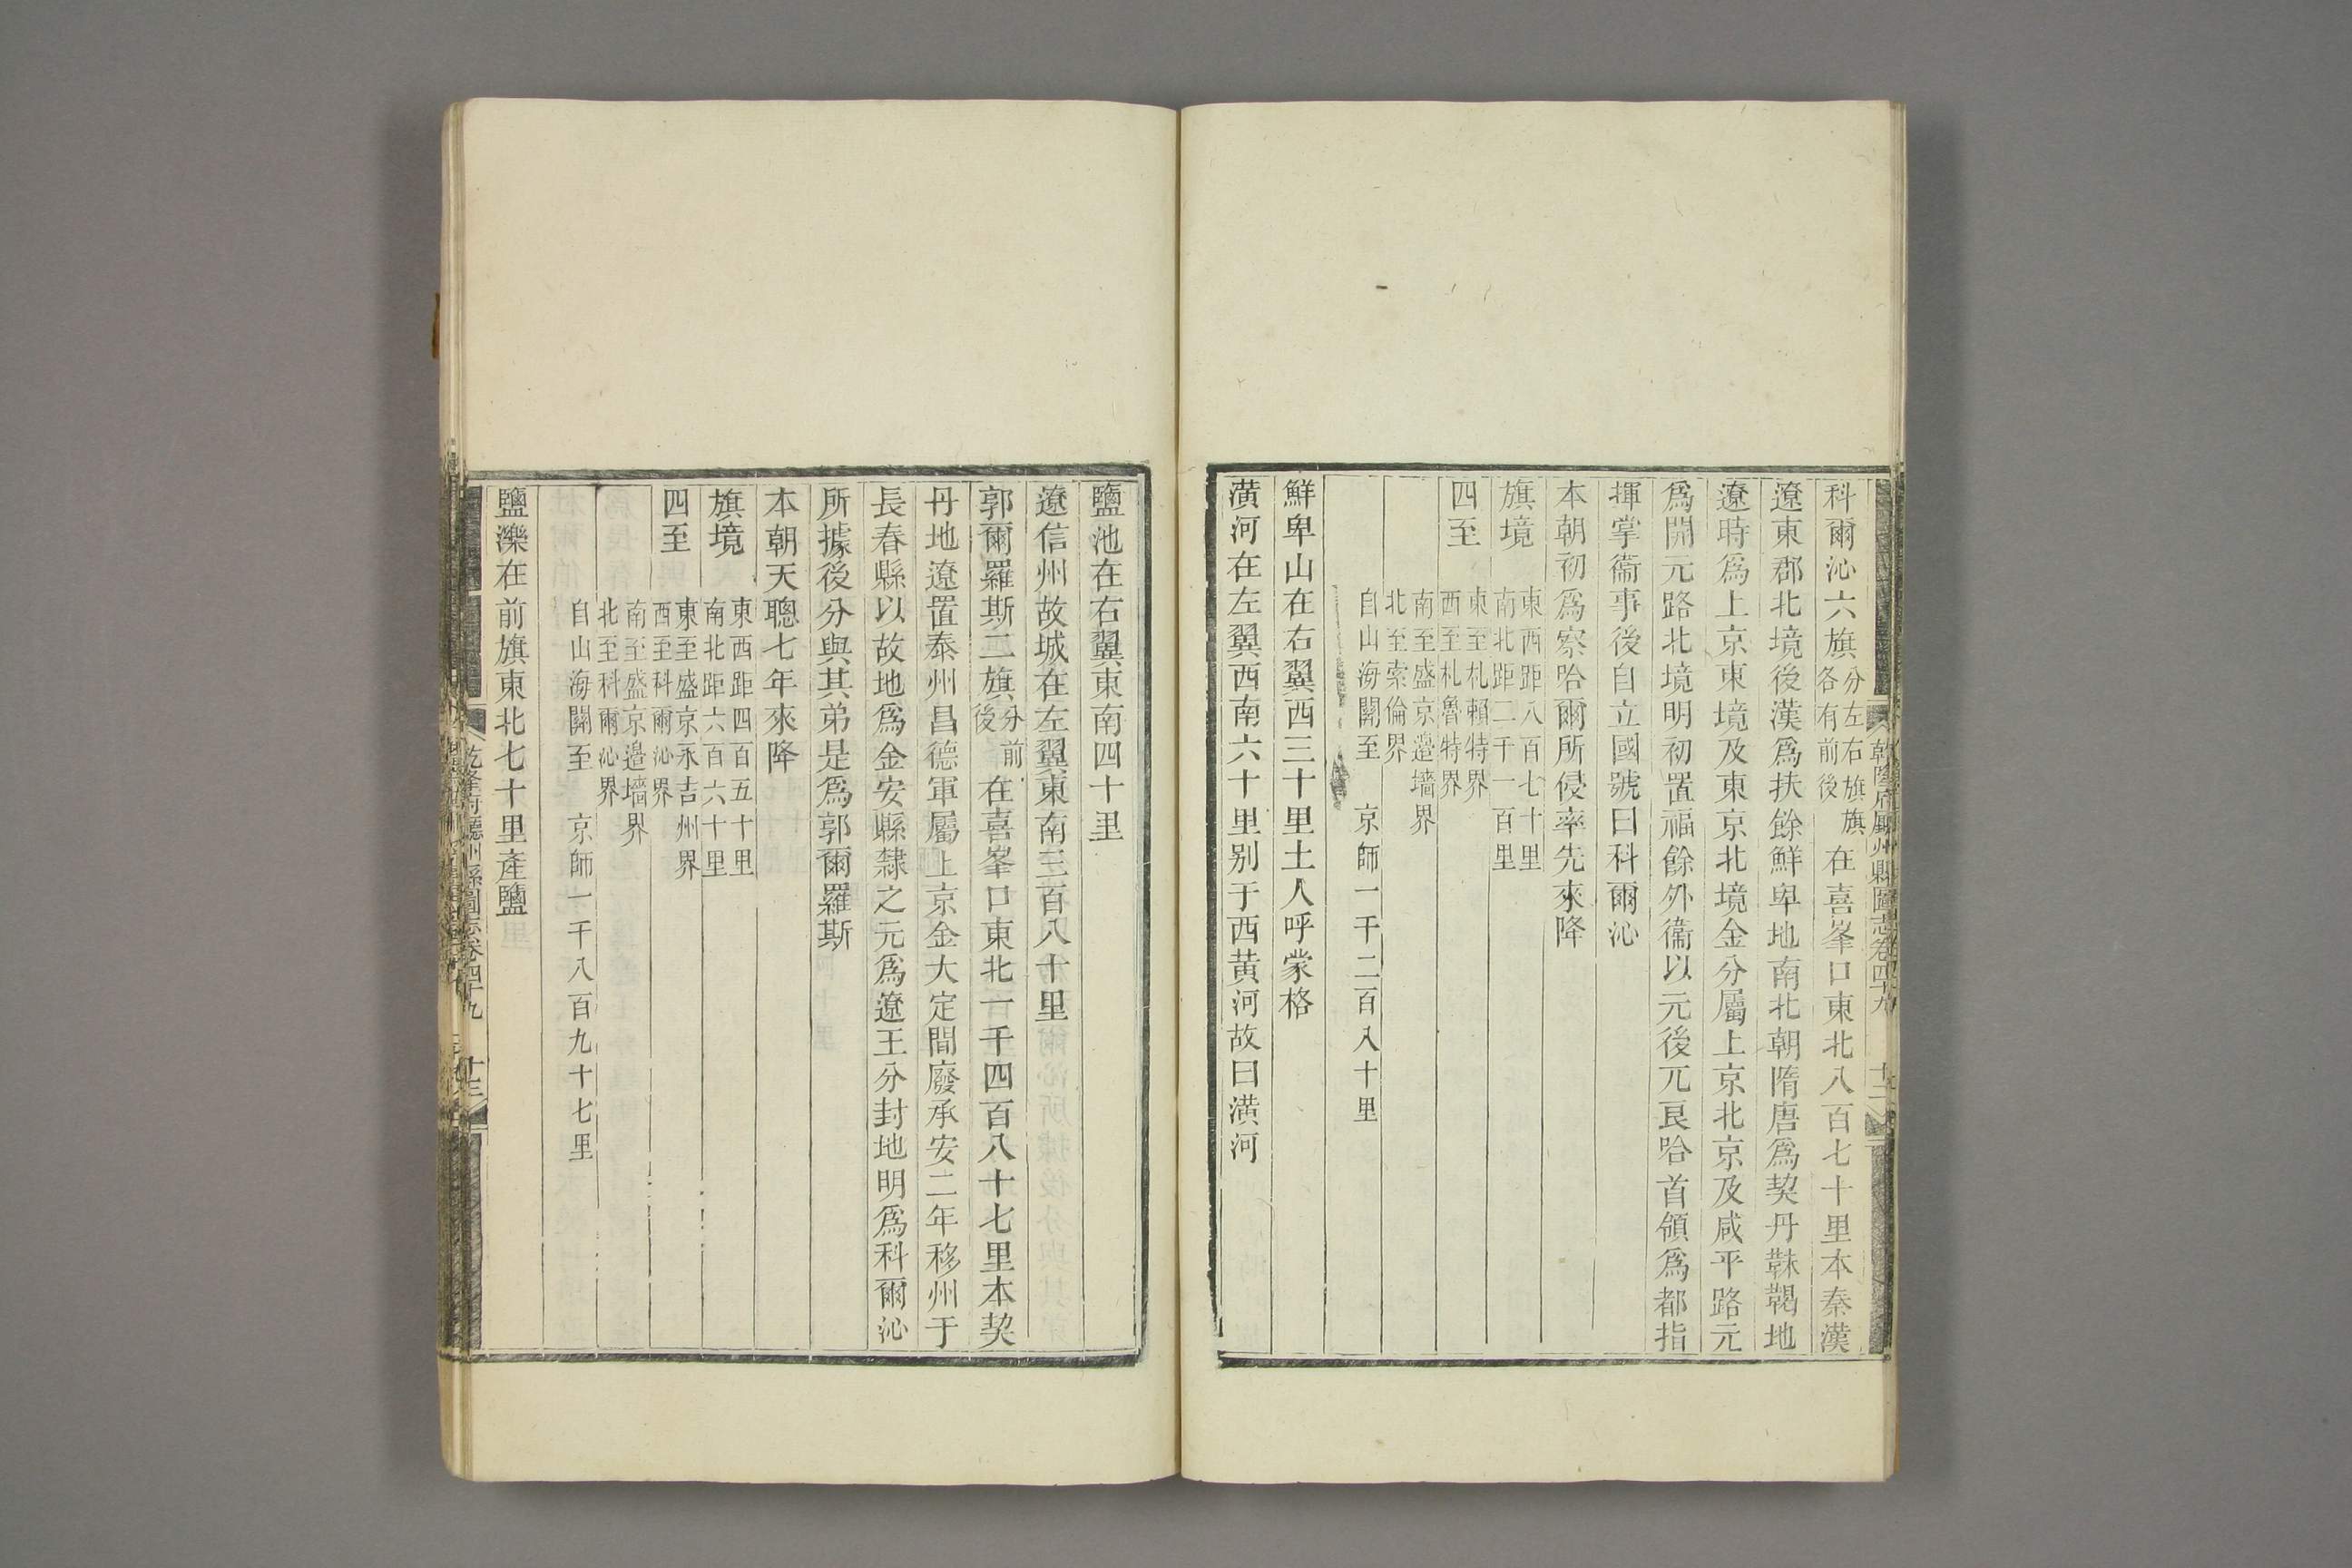 科爾沁六旗分左右旗旗各有前後在喜峯口東北八百七十里本秦漢
遼東郡北境後漢爲扶餘鮮卑地南北朝隋唐爲契丹靺鞨地
遼時爲上京東境及東京北境金分屬上京北京及咸平路元
爲開元路北境明初置福餘外衞以元後兀良哈首領爲都指
揮掌衞事後自立國號曰科爾沁
本朝初爲察哈爾所侵率先來降
旗境
東西距八百七十里
南北距二千一百里
四至
東至札賴特界
西至札魯特界
南至盛京邊墻界
北至索倫界
自山海關至 京師一千二百八十里
鮮卑山在右翼西三十里土人呼蒙格
潢河在左翼西南六十里别于西黄河故曰潢河
鹽池在右翼東南四十里
遼信州故城在左翼東南三百八十里
郭爾羅斯二旗分前後在喜峯口東北一千四百八十七里本契
丹地遼置泰州昌德軍屬上京金大定間廢承安二年移州于
長春縣以故地爲金安縣隸之元爲遼王分封地明爲科爾沁
所據後分與其弟是爲郭爾羅斯
本朝天聰七年來降
旗境
東西距四百五十里
南北距六百六十里
四至
東至盛京永吉州界
西至科爾沁界
南至盛京邉墻界
北至科爾沁界
自山海關至 京師一千八百九十七里
鹽濼在前旗東北七十里產鹽